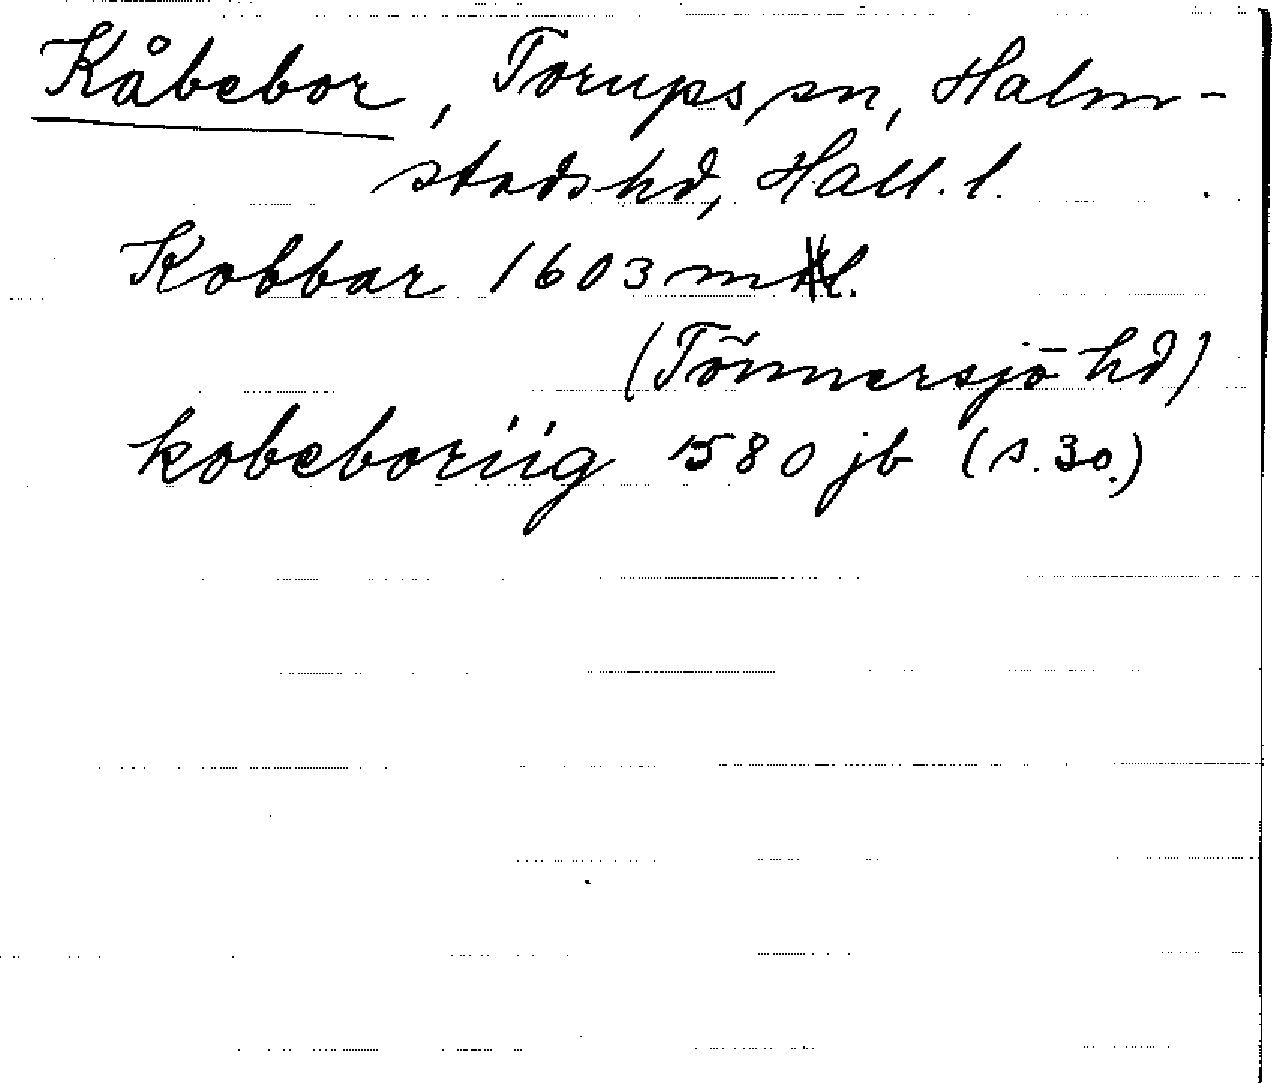 Kåbebor, Torups sn, Halm-
stads hd, Hall. l.
Kobbar 1603 ml.
(Tönnersjö hd)
kobeboriig 1580 jb (s. 30.)